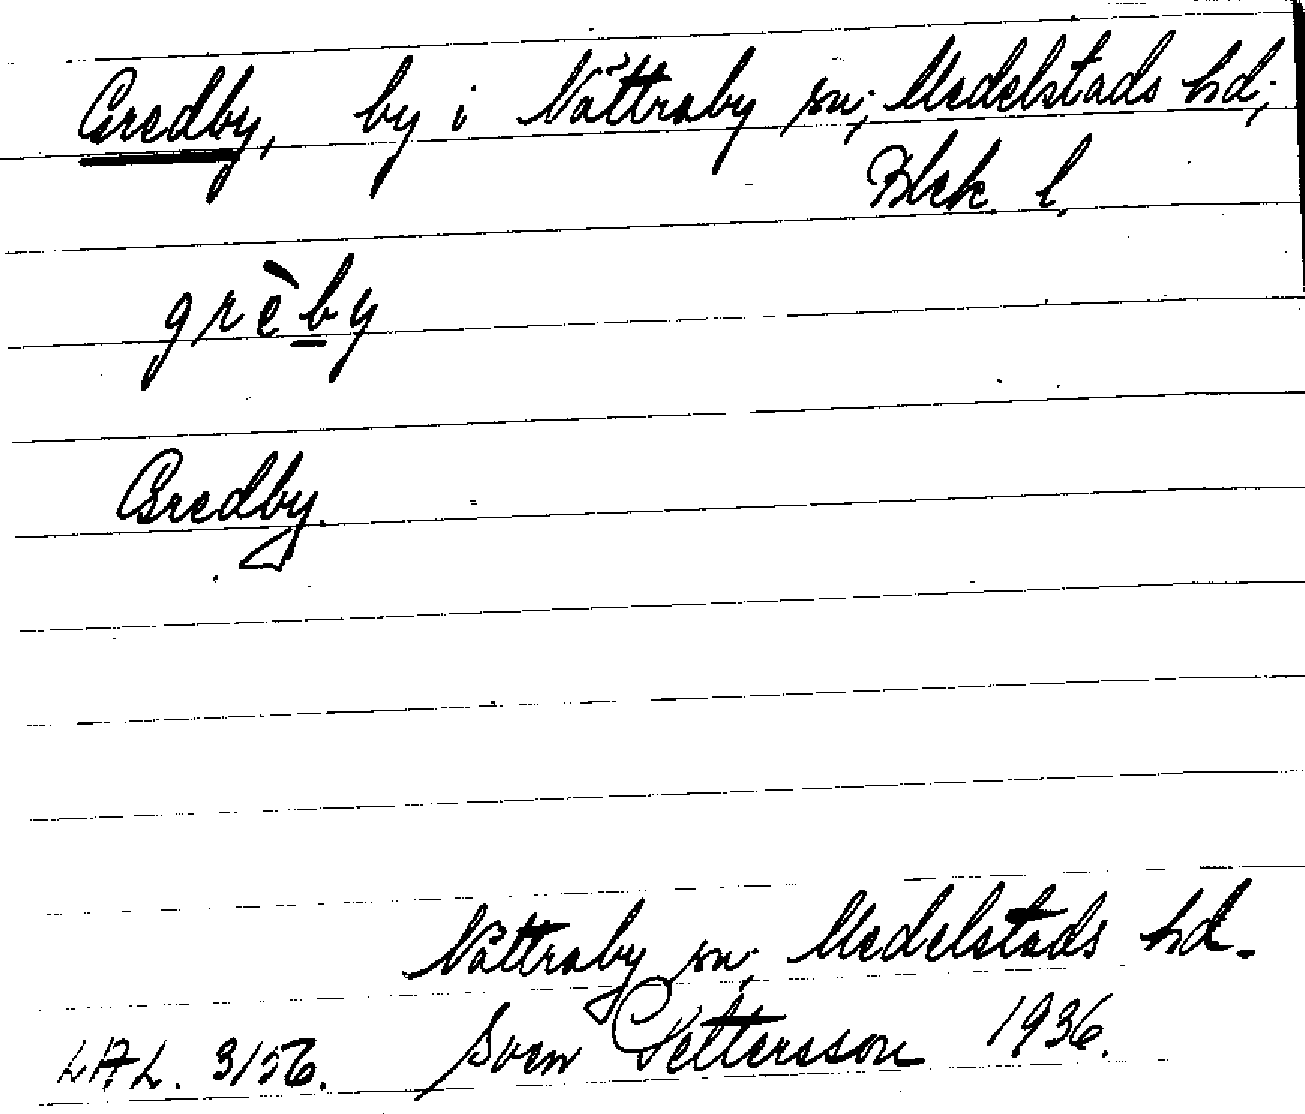 Gredby, by i Nättraby sn; Medelstads hd;
Blek. l.
grèby
Gredby.
Nättraby sn, Medelstads hd.
Sven Pettersson 1936.
LAL. 3156.